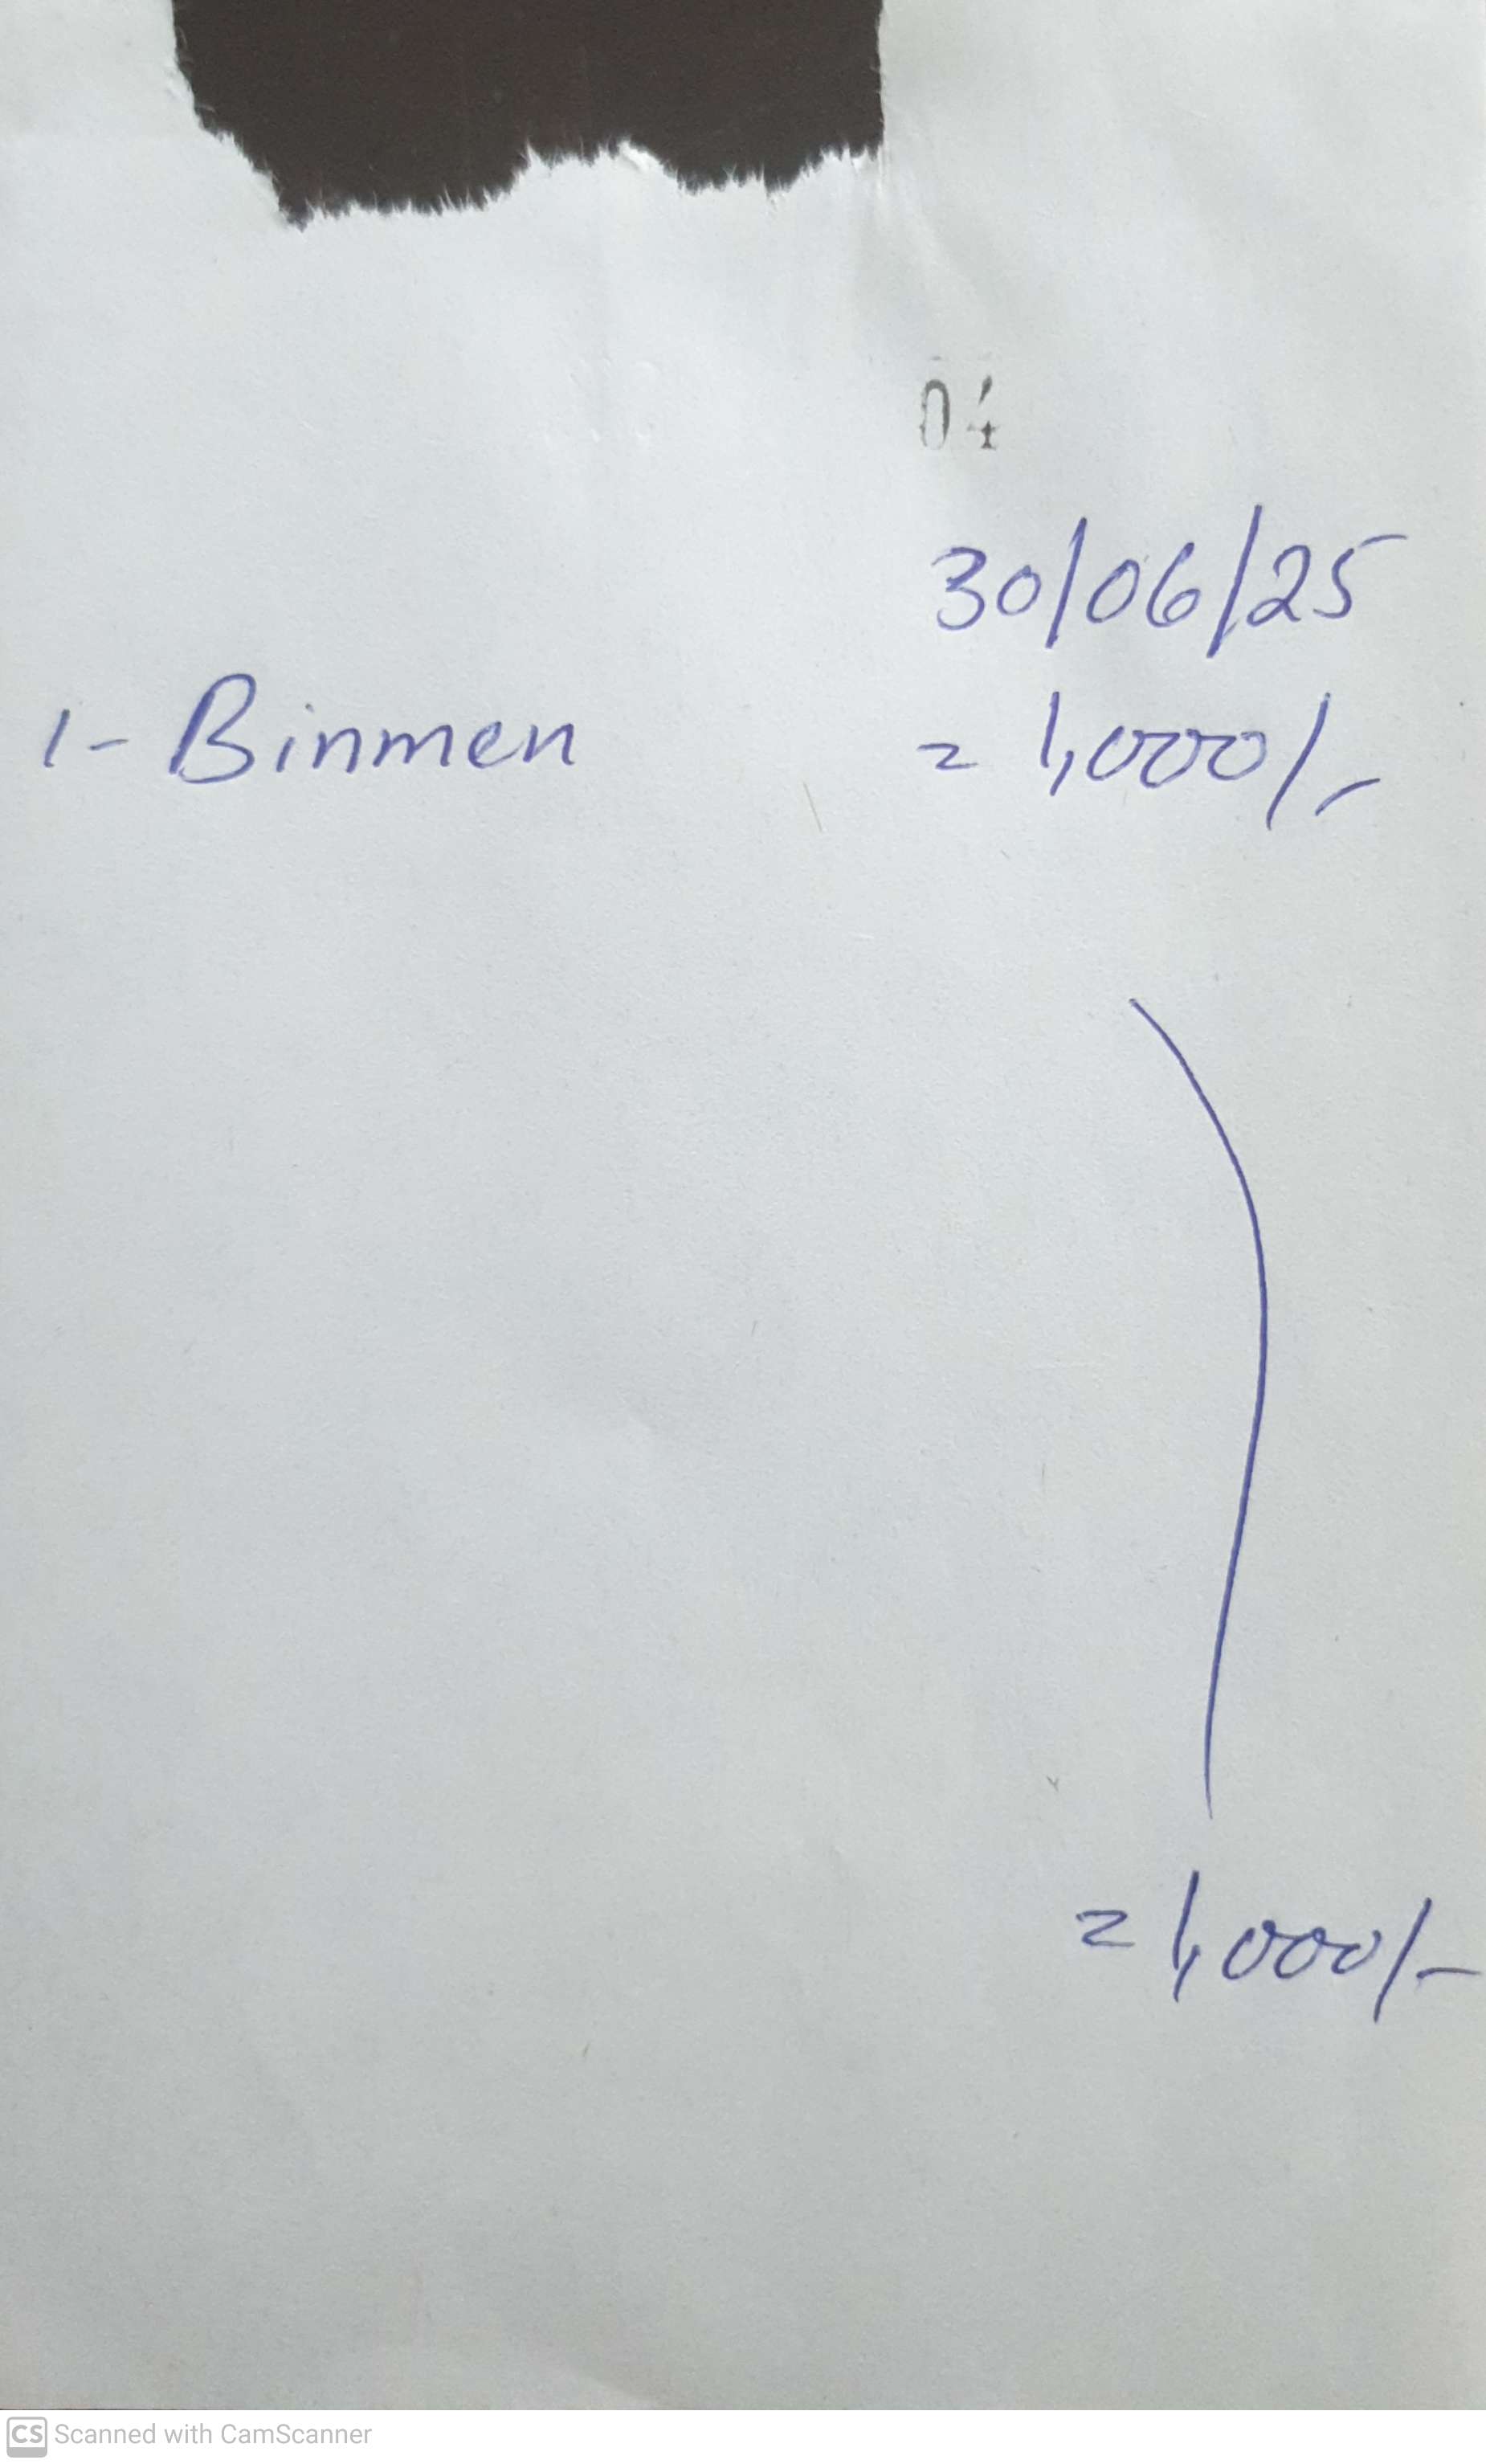 04
30/06/25
1- Binmen = 1,000/-
= 1,000/-
CS Scanned with CamScanner